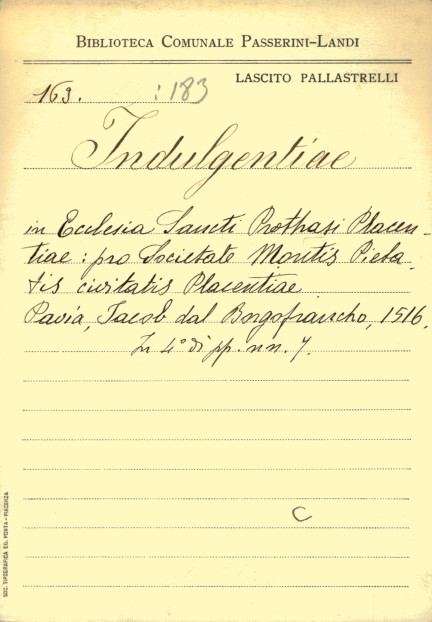 BIBLIOTECA COMUNALE PASSERINI-LANDI
LASCITO PALLASTRELLI
163. :183
Indulgentiae
in Ecclesia Sancti Prothasi Placen-
tiae : pro Societate Montis Pieta,
tis civitatis Placentiae
Pavia, Jacob dal Borgofrancho, 1516,
In 4° di pp. nn. 7.
C
SOC. TIPOGRAFICA ED. PORTA - PIACENZA